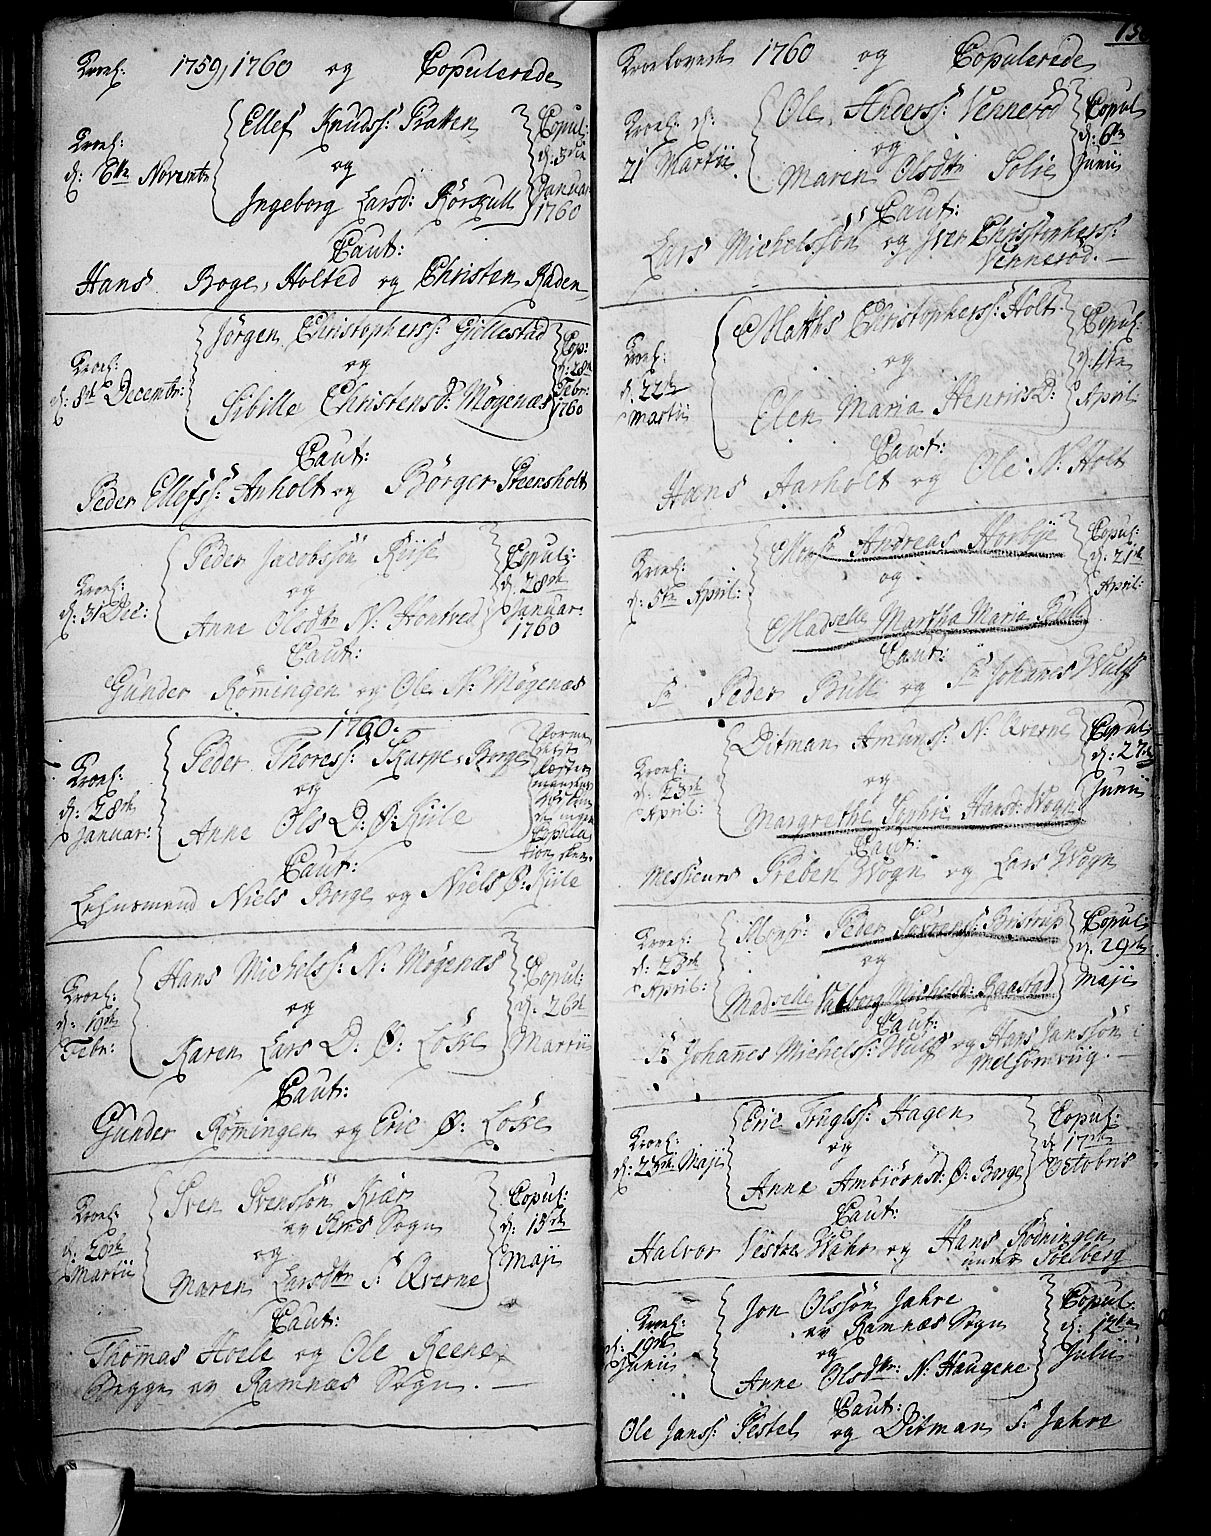 Trol: 1759, 1760 og Copulerede
Trol:
d: 6te Novembr
Ellef Knudss: Pratten
og
Ingeborg Larsd: Rörkull
Copul:
d: 3die
Januar
1760
Caut:
Hans Boge, Holted og Christen Raden
Trol:
d: 8de Decembr:
Jörgen Christophers: Gillestad
og
Sibille Christensd: Møyenæs
Cop:
d: 28de
Febr:
1760
Caut:
Peder Ellefss: Anholt og Börger Steensholt
Trol:
d: 31 Dec:
Peder Jacobssön Riise
og
Anne Olsdtr N: Hontved
Copul:
d: 28de
Januar:
1760
Caut:
Gunder Römingen og Ole N: Møgenæs
1760.
Trol:
d: 28de
Januar:
Peder Thoress: Skarpe, Borge
og
Anne Ols D: Ø: Kiile
Caut:
Lehnsmand Niels Borge og Niels Ø: Kiile
Trol:
d: 19de
Febr:
Hans Michelss: N: Møgenæs
og
Karen Lars D: Ø: Löke
Copul:
d: 26de
Martii
Caut:
Gunder Römingen og Eric Ø: Löke
Trol:
d: 20de
Martii
Sven Svensön Kiær
av Sogn
og
Maren Larsdtr S: Qverne
Copul:
d: 15de
Maji
Caut:
Thomas Hoele og Ole Reene
Begge av Ramnæs Sogn.
Trolovede 1760 og Copulerede
Trol: d:
21 Martii
Ole Anderss: Vennerød
og
Maren Olsdtr Solie
Copul
d: 6te
Junii
Caut:
Lars Michelssön og Iver Christophers:
Vennerød.
Trol:
d: 22de
Martii
Matths Christophers: Holt
og
Elen Maria Henrics D:
Copul:
d:
April:
Caut:
Hans Aarholt og Ole N: Holt
Trol:
d: 5te April:
Monsr Andreas Horbye
og
Madselle Martha Maria Bull
Copul:
d: 21de
April:
Caut:
Sr Peder Bull og Sr Johanes Wulff
Trol:
d: 23de
April:
Ditman Amunss: N: Qverne
og
Margrethe Sophie Hansd: Wogn
Copul:
d: 27de
Junii
Caut:
Messieurs Preben Wogn og Lars Wogn
Trol:
d: 23de
April:
Monsr: Peder Sörens: Bristrup
og
Madselle Valborg Michelsd: Baastad
Copul:
d: 29de
Maji
Caut:
Sr Johannes Michelss: Wulff og Hans Janssön i
Melsomviig.
Trol:
d: 23de Maji
Eric Trugls: Hagen
og
Anne Ambiörnsd: Ø: Borge
Copul:
d: 17de
Octobris
Caut:
Halvor Vestre Wahr og Hans Rödningen
under Soelberg
Trol:
d: 19de
Junii
Jon Olssön Jahre
av Ramnæs Sogn
og
Anne Olsdtr: N: Haugene
Copul:
d: 12te
Julii
Caut:
Ole Janss: Pestel og Ditman S: Jahre